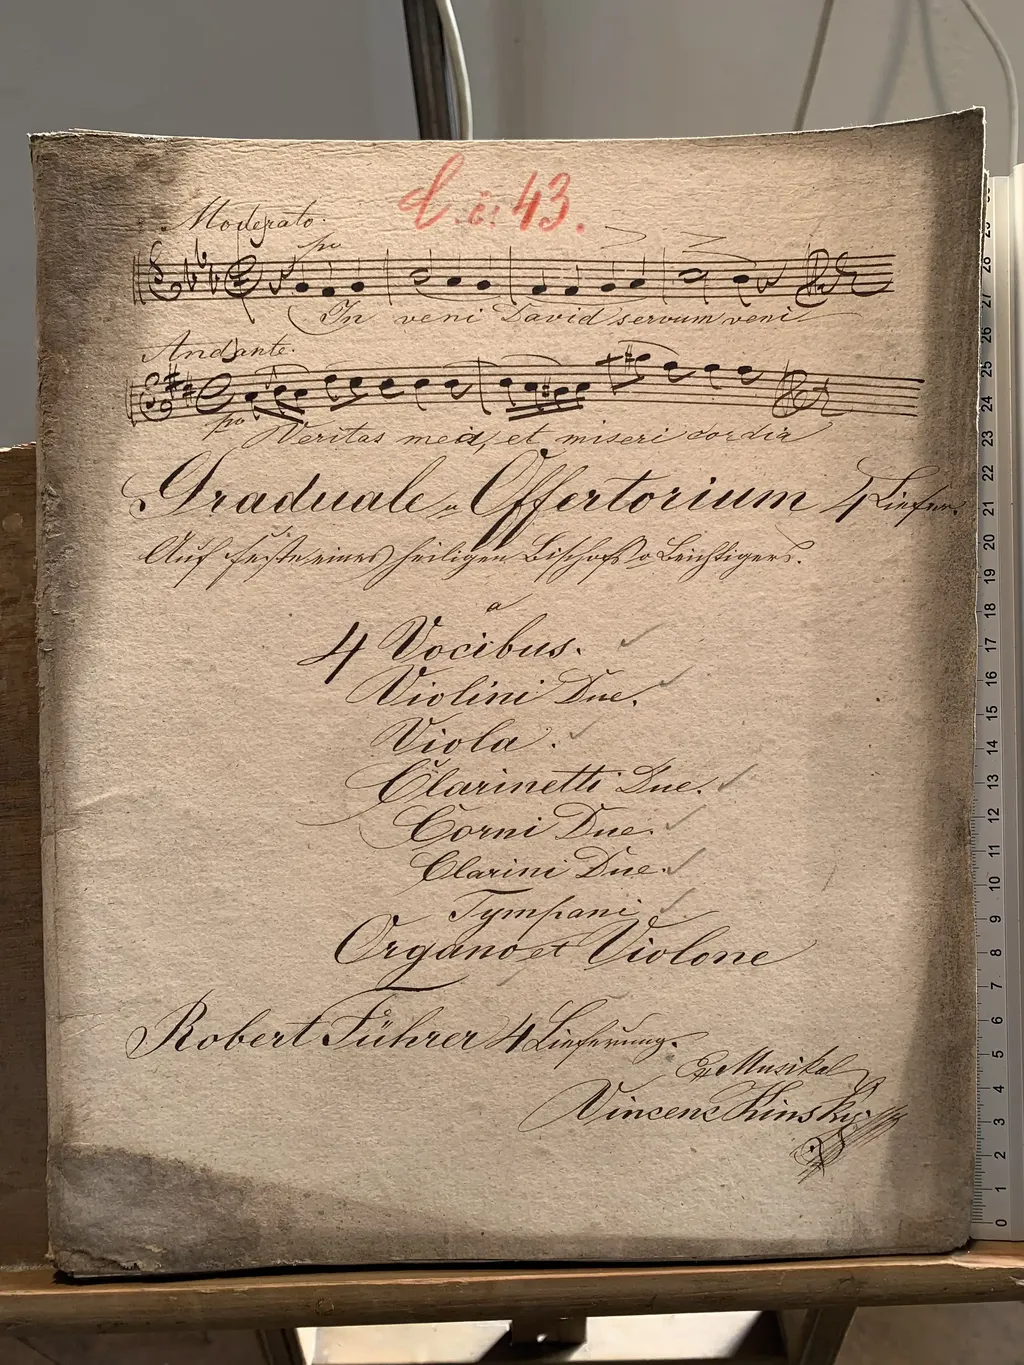 č: 43.
Moderato.
po
In veni David servum veni
Andante.
po
Veritas mea, et miseri cordia
Graduale u Offertorium 4 Liefer.
Auf Feste eines heiligen Bischofs o Beichtigers.
a
4 Vocibus.
Violini Due.
Viola.
Clarinetti Due.
Corni Due.
Clarini Due.
Tympani
Organo et Violone
Robert Führer 4 Lieferung.
Ex Musikal
Vincenz Kinsky
0 1 2 3 4 5 6 7 8 9 10 11 12 13 14 15 16 17 18 19 20 21 22 23 24 25 26 27 28 29